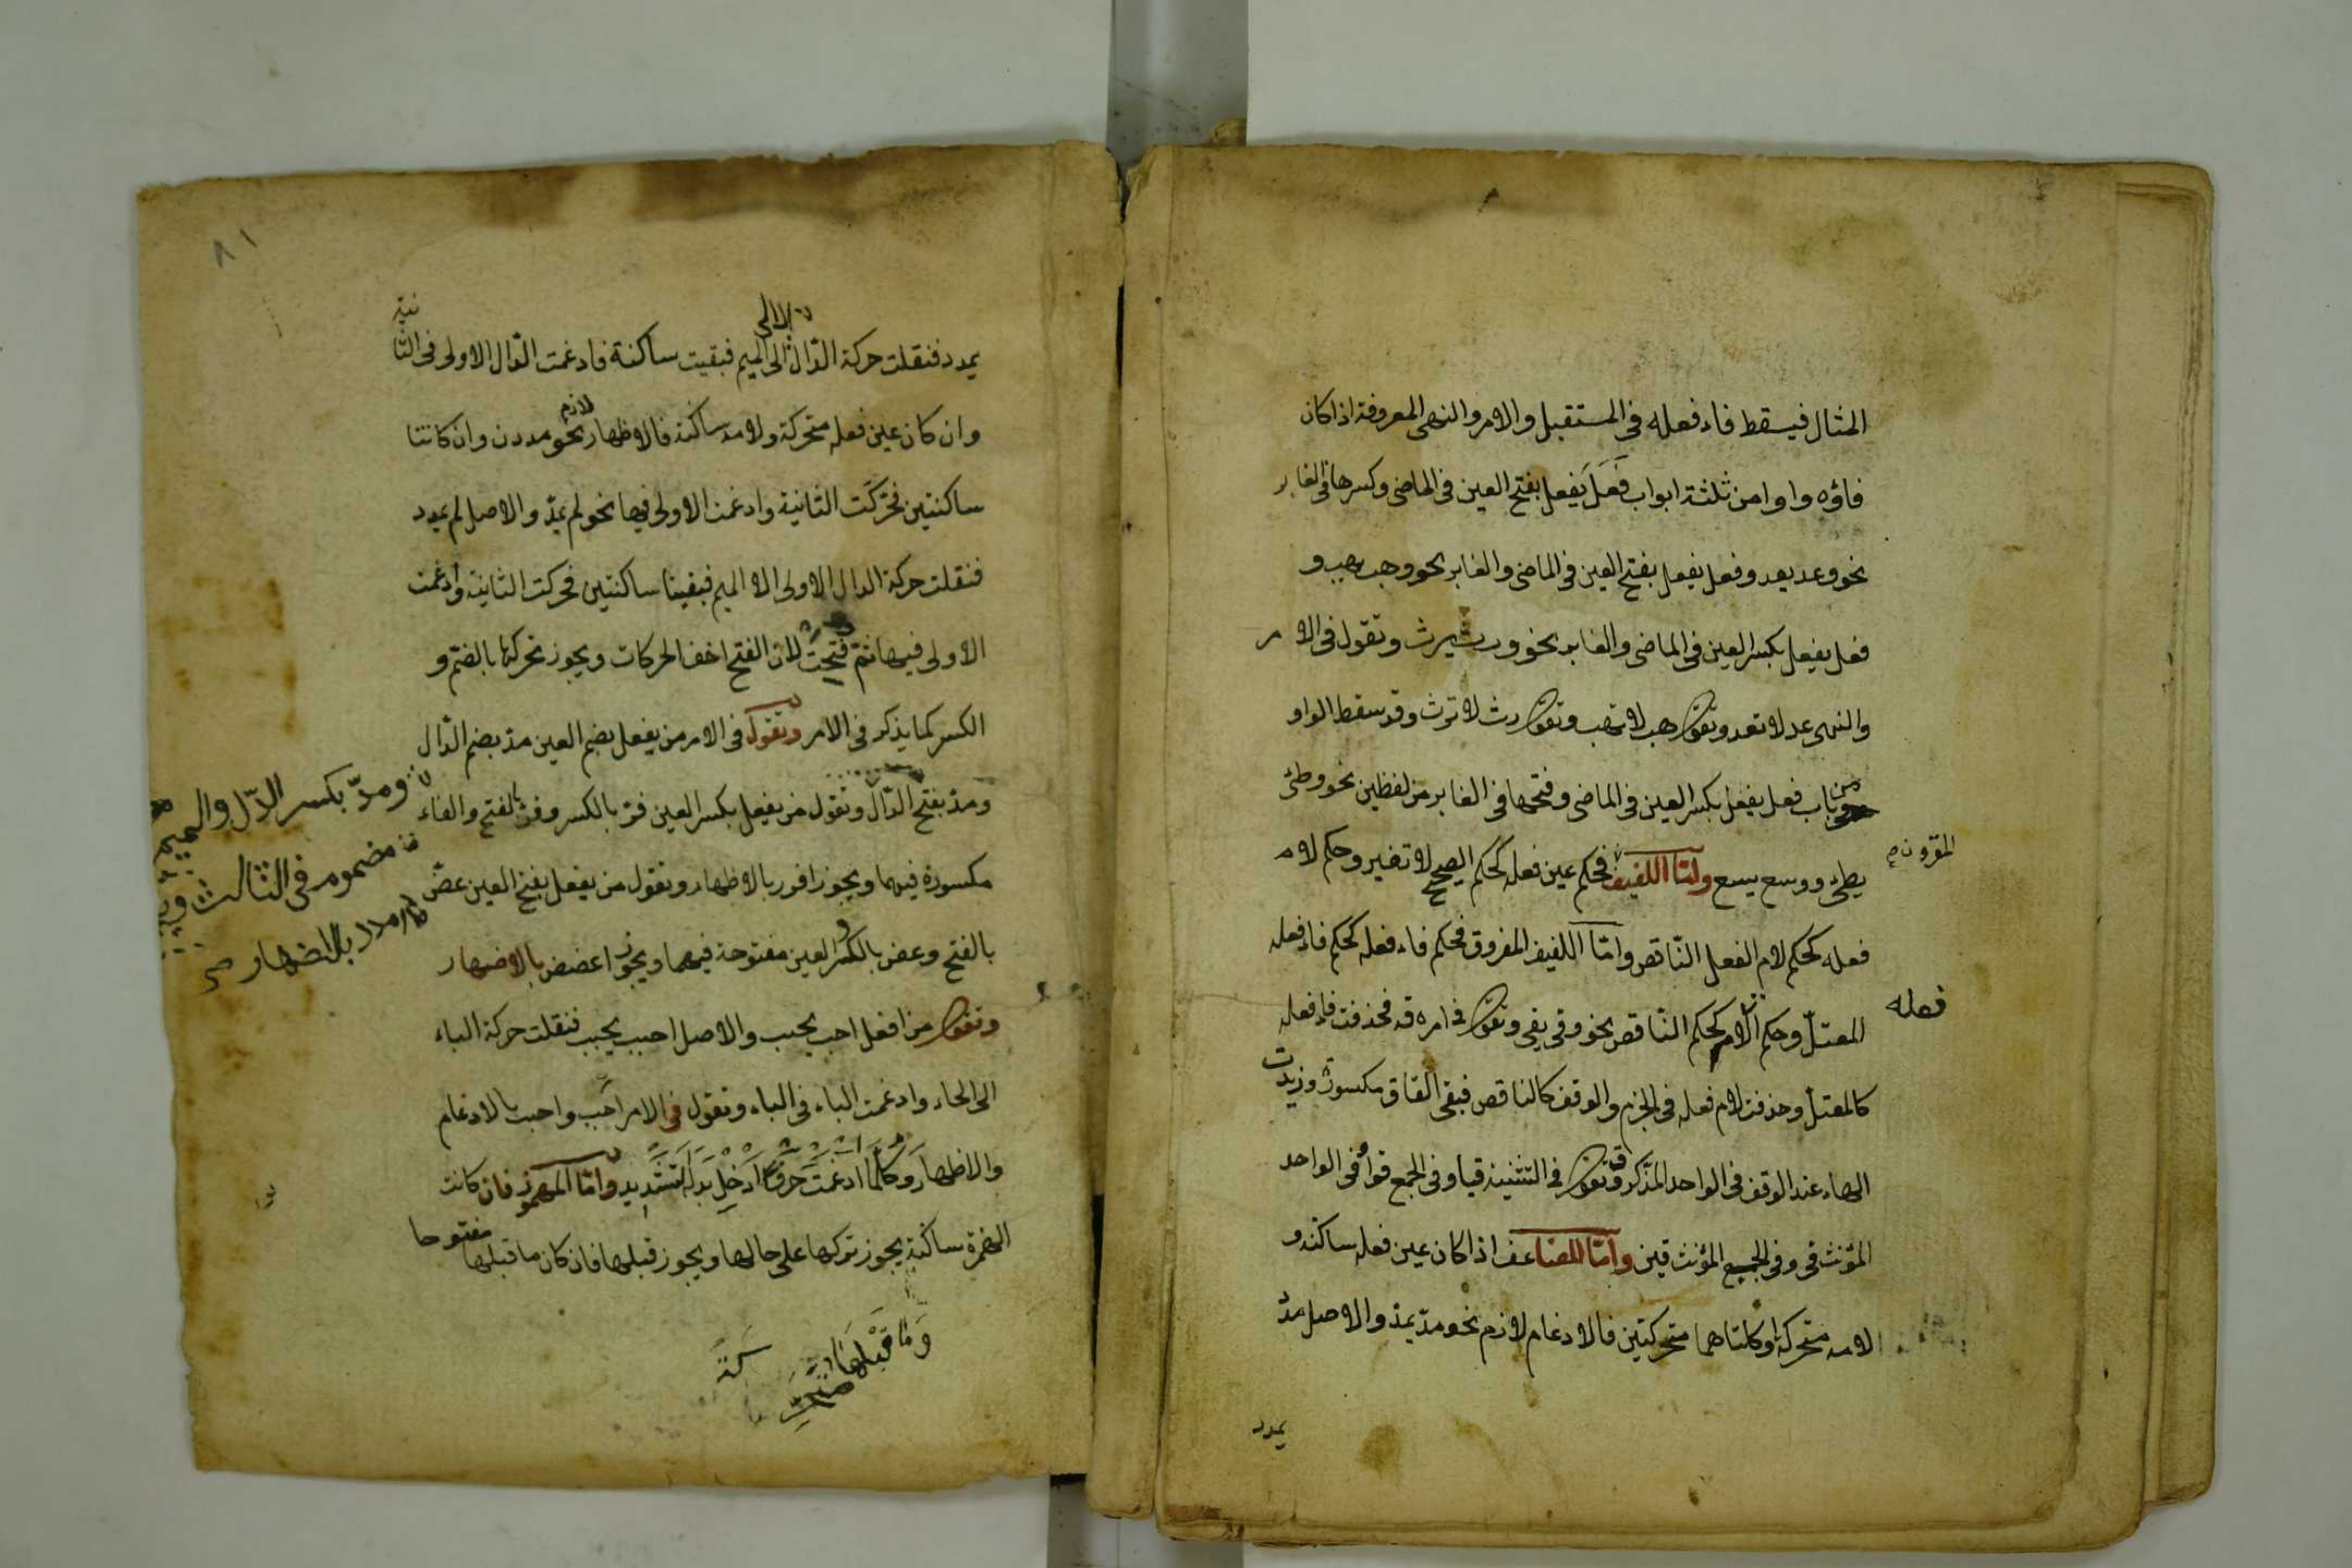 المثال فيسقط فاء فعله فى المستقبل والامر والنهى المعروفة اذا كان
فاؤه واوا من ثلثة ابواب فَعَلَ يَفعِل بفتح العين فى الماضى وكسرها فى الغابر
نحو وعد يعد وفعل يفعل بفتح العين فى الماضى والغابر نحو وهب يهب و
فعل يفعل بكسر العين فى الماضى والغابر نحو ورث يرث وتقول فى الامر
والنهى عد لا تعد وتقول هب لا تهب وتقول رث لا ترث وقد سقط الواو
من باب فعل يفعل بكسر العين فى الماضى وفتحها فى الغابر من لفظين نحو وطئ
يطئ ووسع يسع وامّا اللفيف فحكم عين فعله كحكم الصحيح لا تغير وحكم لام
المقرون صح
فعله كحكم لام الفعل النّاقص وامّا اللفيف المفروق فحكم فاء فعله كحكم فاء فعله
المعتلّ وحكم اللام كحكم النّاقص نحو وقى يقى وتقول فى امره قه فحذفت فاء فعله
فعله
كالمعتلّ وحذفت لام فعله فى الجزم والوقف كالناقص فبقى القاف مكسورة وزيدت
الهاء عند الوقف فى الواحد المذكر وتقول فى التثنية قيا وفى الجمع قوا وفى الواحد
المؤنث قى وفى الجمع المؤنث قين وامّا المضاعف اذا كان عين فعله ساكنه و
لامه متحركة او كلتاهما متحركتين فالادغام لازم نحو مدّ يمدّ والاصل مدد
يمدد
٨١
يمدد فنقلت حركة الدّال الى الميم فبقيت ساكنة فادغمت الدّال الاولى فى الثانية
وان كان عين فعله متحركة ولامه ساكنة فالاظهار لازم نحو مددن وان كانتا
ساكنتين فحرّكت الثانية وادغمت الاولى فيها نحو لم يمدّ والاصل لم يمدد
فنقلت حركة الدال الاولى الا الميم فبقيتا ساكنتين فحركت الثانية وأدغمت
الاولى فيها ثمّ فتحت لان الفتح اخف الحركات ويجوز تحركها بالضمّ و
الكسر كما يذكر فى الامر وتقول فى الامر من يفعل بضم العين مدّ بضم الدّال
ومدّ بفتح الدّال وتقول من يفعل بكسر العين فرّ بالكسر وفرّ بالفتح والفاء
ومدّ بكسر الدّل والميم
مضموم فى الثالث
امدد بالاضهار صح
مكسورة فيهما ويجوز افرر بالاظهار وتقول من يفعل بفتح العين عضّ
بالفتح وعض بالكسر والعين مفتوحة فيهما ويجوز اعضض بالاضهار
وتقول من افعل احب يحب والاصل احبب يحبب فنقلت حركة الباء
الى الحاء وادغمت الباء فى الباء وتقول فى الامر احب واحبب بالادغام
والاظهار وكلّما ادغمت حرفا ادخل بدله التشديد وامّا المهموز فان كانت
الهمزة ساكنة يجوز تركها على حالها ويجوز قبلها فان كان ما قبلها مفتوحا
وما قبلها